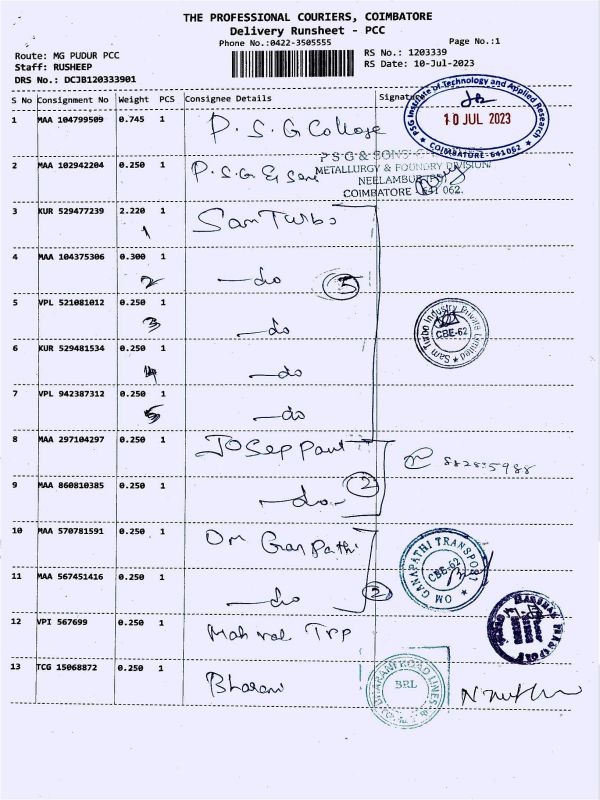 THE PROFESSIONAL COURIERS, COIMBATORE
Delivery Runsheet - PCC
Phone No.:0422-3505555
Page No.:1
Route: MG PUDUR PCC
RS No.: 1203339
Staff: RUSHEEP
RS Date: 10-Jul-2023
DRS No.: DCJB120333901
S No Consignment No Weight PCS Consignee Details Signature
PSG Institute of Technology and Applied Research
10 JUL 2023
* COIMBATORE-641062 *
1 MAA 104799509 0.745 1 P.S.G College
2 MAA 102942204 0.250 1 P.S.G & Sons
PSG & SONS'
METALLURGY & FOUNDRY DIVISION
NEELAMBUR
COIMBATORE - 641 062.
3 KUR 529477239 2.220 1 Sam Turbo
1
4 MAA 104375306 0.300 1 -do
2 5
5 VPL 521081012 0.250 1 -do
3
Sam Turbo Industry Private Limited
CBE-62
6 KUR 529481534 0.250 1 -do
4
7 VPL 942387312 0.250 1 -do
5
8 MAA 297104297 0.250 1
9 MAA 860810385 0.250 1 -do-
2
10 MAA 570781591 0.250 1 Om Ganpathi
OM GANAPATHI TRANSPORT
CBE-62
11 MAA 567451416 0.250 1 -do
2
12 VPI 567699 0.250 1
13 TCG 15068872 0.250 1 Bharani
BHARANI ROAD LINES
BRL